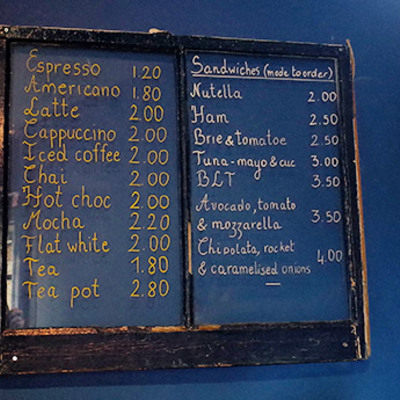 Espresso 1.20
Americano 1.80
Latte 2.00
Cappuccino 2.00
Iced coffee 2.00
Chai 2.00
Hot choc 2.00
Mocha 2.20
Flat white 2.00
Tea 1.80
Tea pot 2.80
Sandwiches (made to order)
Nutella 2.00
Ham 2.50
Brie & tomatoe 2.50
Tuna-mayo & cuc 3.00
BLT 3.50
Avocado, tomato
& mozzarella 3.50
Chipolata, rocket
& caramelised onions 4.00